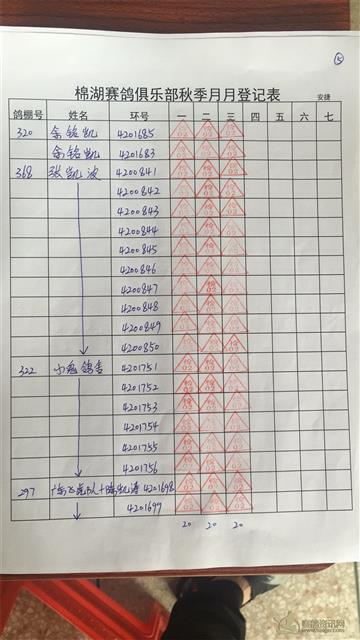 ⑤
棉湖赛鸽俱乐部秋季月月登记表 安捷
鸽棚号 姓名 环号 一 二 三 四 五 六 七
320 余铭凯 4201685
余铭凯 4201683
368 张凯波 4200841
4200842
4200843
4200844
4200845
4200846
4200847
4200848
4200849
4200850
322 小 鸽舍 4201751
4201752
4201753
4201754
4201755
4201756
297 4201698
4201699
20 20 20